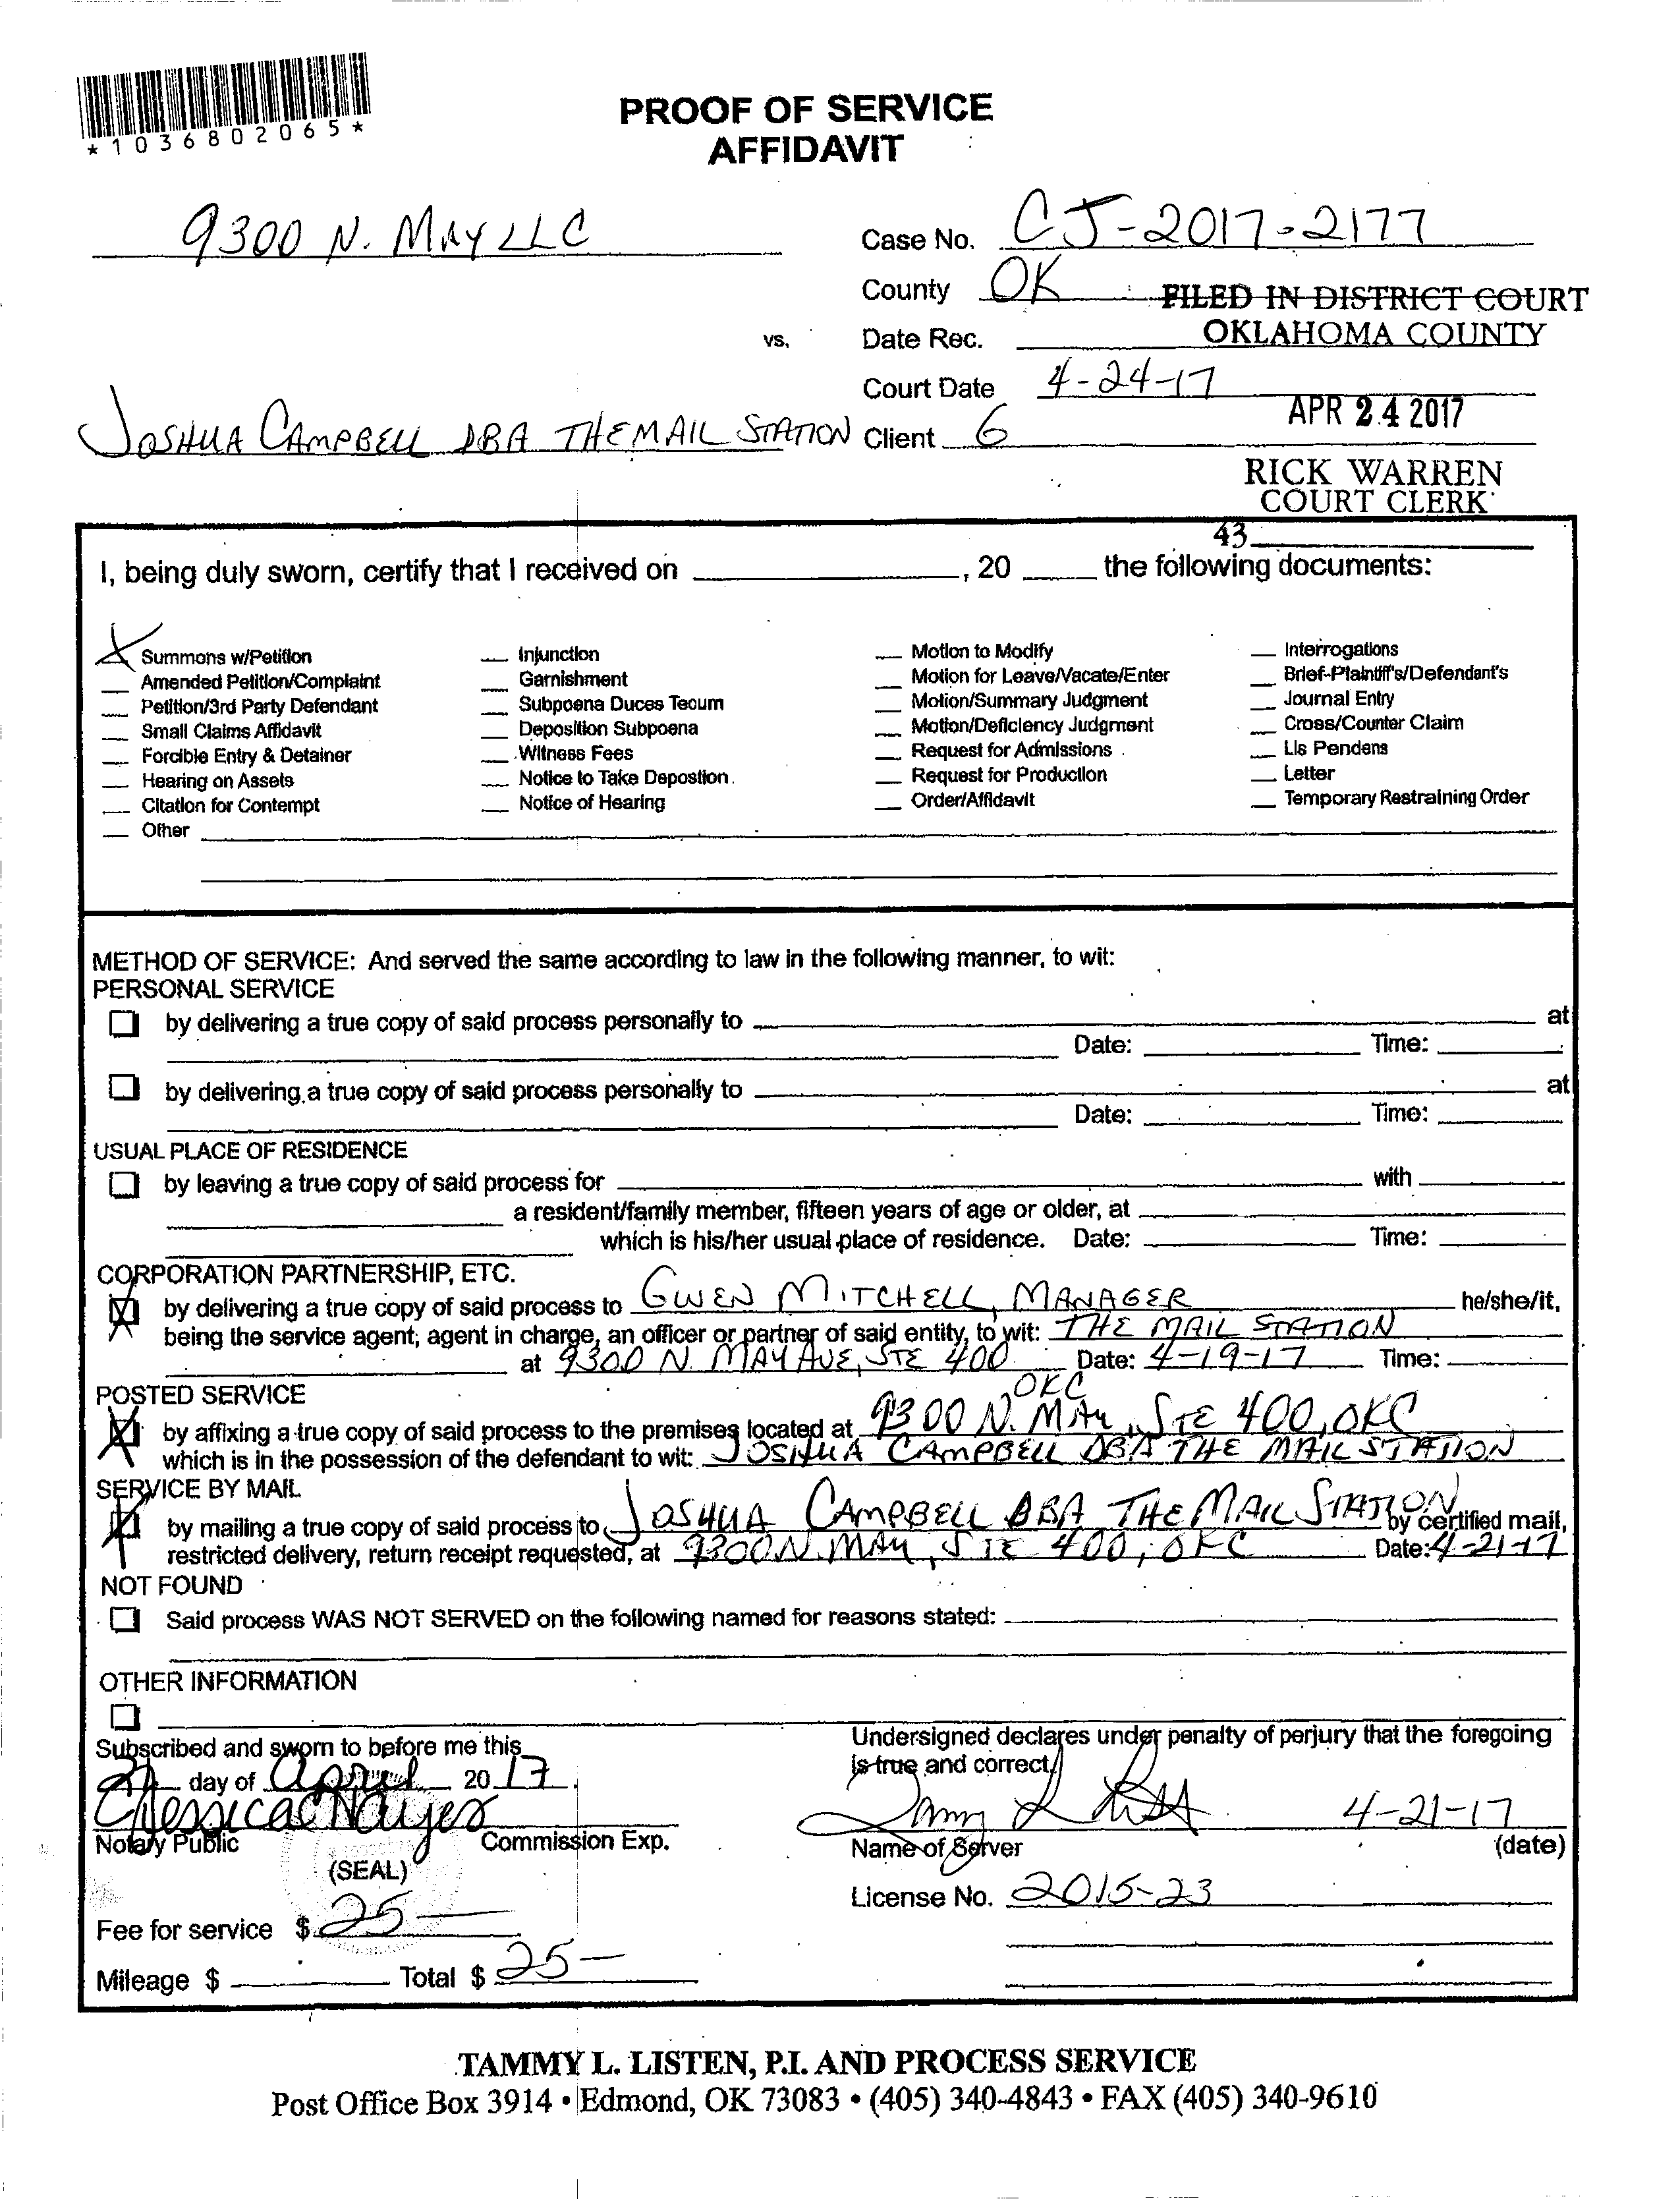 *1036802065*
PROOF OF SERVICE
AFFIDAVIT
9300 N. MAY LLC
Case No. CJ-2017-2177
County OK
FILED IN DISTRICT COURT
OKLAHOMA COUNTY
vs.
Date Rec.
Court Date 4-24-17
APR 24 2017
JOSHUA CAMPBELL DBA THE MAIL STATION
Client 6
RICK WARREN
COURT CLERK
43
I, being duly sworn, certify that I received on ____, 20 ____ the following documents:
X Summons w/Petition
Amended Petition/Complaint
Petition/3rd Party Defendant
Small Claims Affidavit
Forcible Entry & Detainer
Hearing on Assets
Citation for Contempt
Other
Injunction
Garnishment
Subpoena Duces Tecum
Deposition Subpoena
Witness Fees
Notice to Take Depostion
Notice of Hearing
Motion to Modify
Motion for Leave/Vacate/Enter
Motion/Summary Judgment
Motion/Deficiency Judgment
Request for Admissions
Request for Production
Order/Affidavit
Interrogations
Brief-Plaintiff's/Defendant's
Journal Entry
Cross/Counter Claim
Lis Pendens
Letter
Temporary Restraining Order
METHOD OF SERVICE: And served the same according to law in the following manner, to wit:
PERSONAL SERVICE
by delivering a true copy of said process personally to ____ at
Date: ____ Time: ____
by delivering a true copy of said process personally to ____ at
Date: ____ Time: ____
USUAL PLACE OF RESIDENCE
by leaving a true copy of said process for ____ with ____
a resident/family member, fifteen years of age or older, at ____
which is his/her usual place of residence. Date: ____ Time: ____
CORPORATION PARTNERSHIP, ETC.
X by delivering a true copy of said process to GWEN MITCHELL, MANAGER he/she/it,
being the service agent, agent in charge, an officer or partner of said entity, to wit: THE MAIL STATION
at 9300 N. MAY AVE, STE 400 Date: 4-19-17 Time: ____
OKC
POSTED SERVICE
X by affixing a true copy of said process to the premises located at 9300 N. MAY, STE 400, OKC
which is in the possession of the defendant to wit: JOSHUA CAMPBELL DBA THE MAIL STATION
SERVICE BY MAIL
X by mailing a true copy of said process to JOSHUA CAMPBELL DBA THE MAIL STATION by certified mail,
restricted delivery, return receipt requested, at 9300 N. MAY, STE 400, OKC Date: 4-21-17
NOT FOUND
Said process WAS NOT SERVED on the following named for reasons stated:
OTHER INFORMATION
Subscribed and sworn to before me this
21 day of April 2017.
Notary Public
Commission Exp.
(SEAL)
Fee for service $ 25-
Mileage $ ____ Total $ 25-
Undersigned declares under penalty of perjury that the foregoing
is true and correct.
4-21-17
Name of Server
(date)
License No. 2015-23
TAMMY L. LISTEN, P.I. AND PROCESS SERVICE
Post Office Box 3914 • Edmond, OK 73083 • (405) 340-4843 • FAX (405) 340-9610